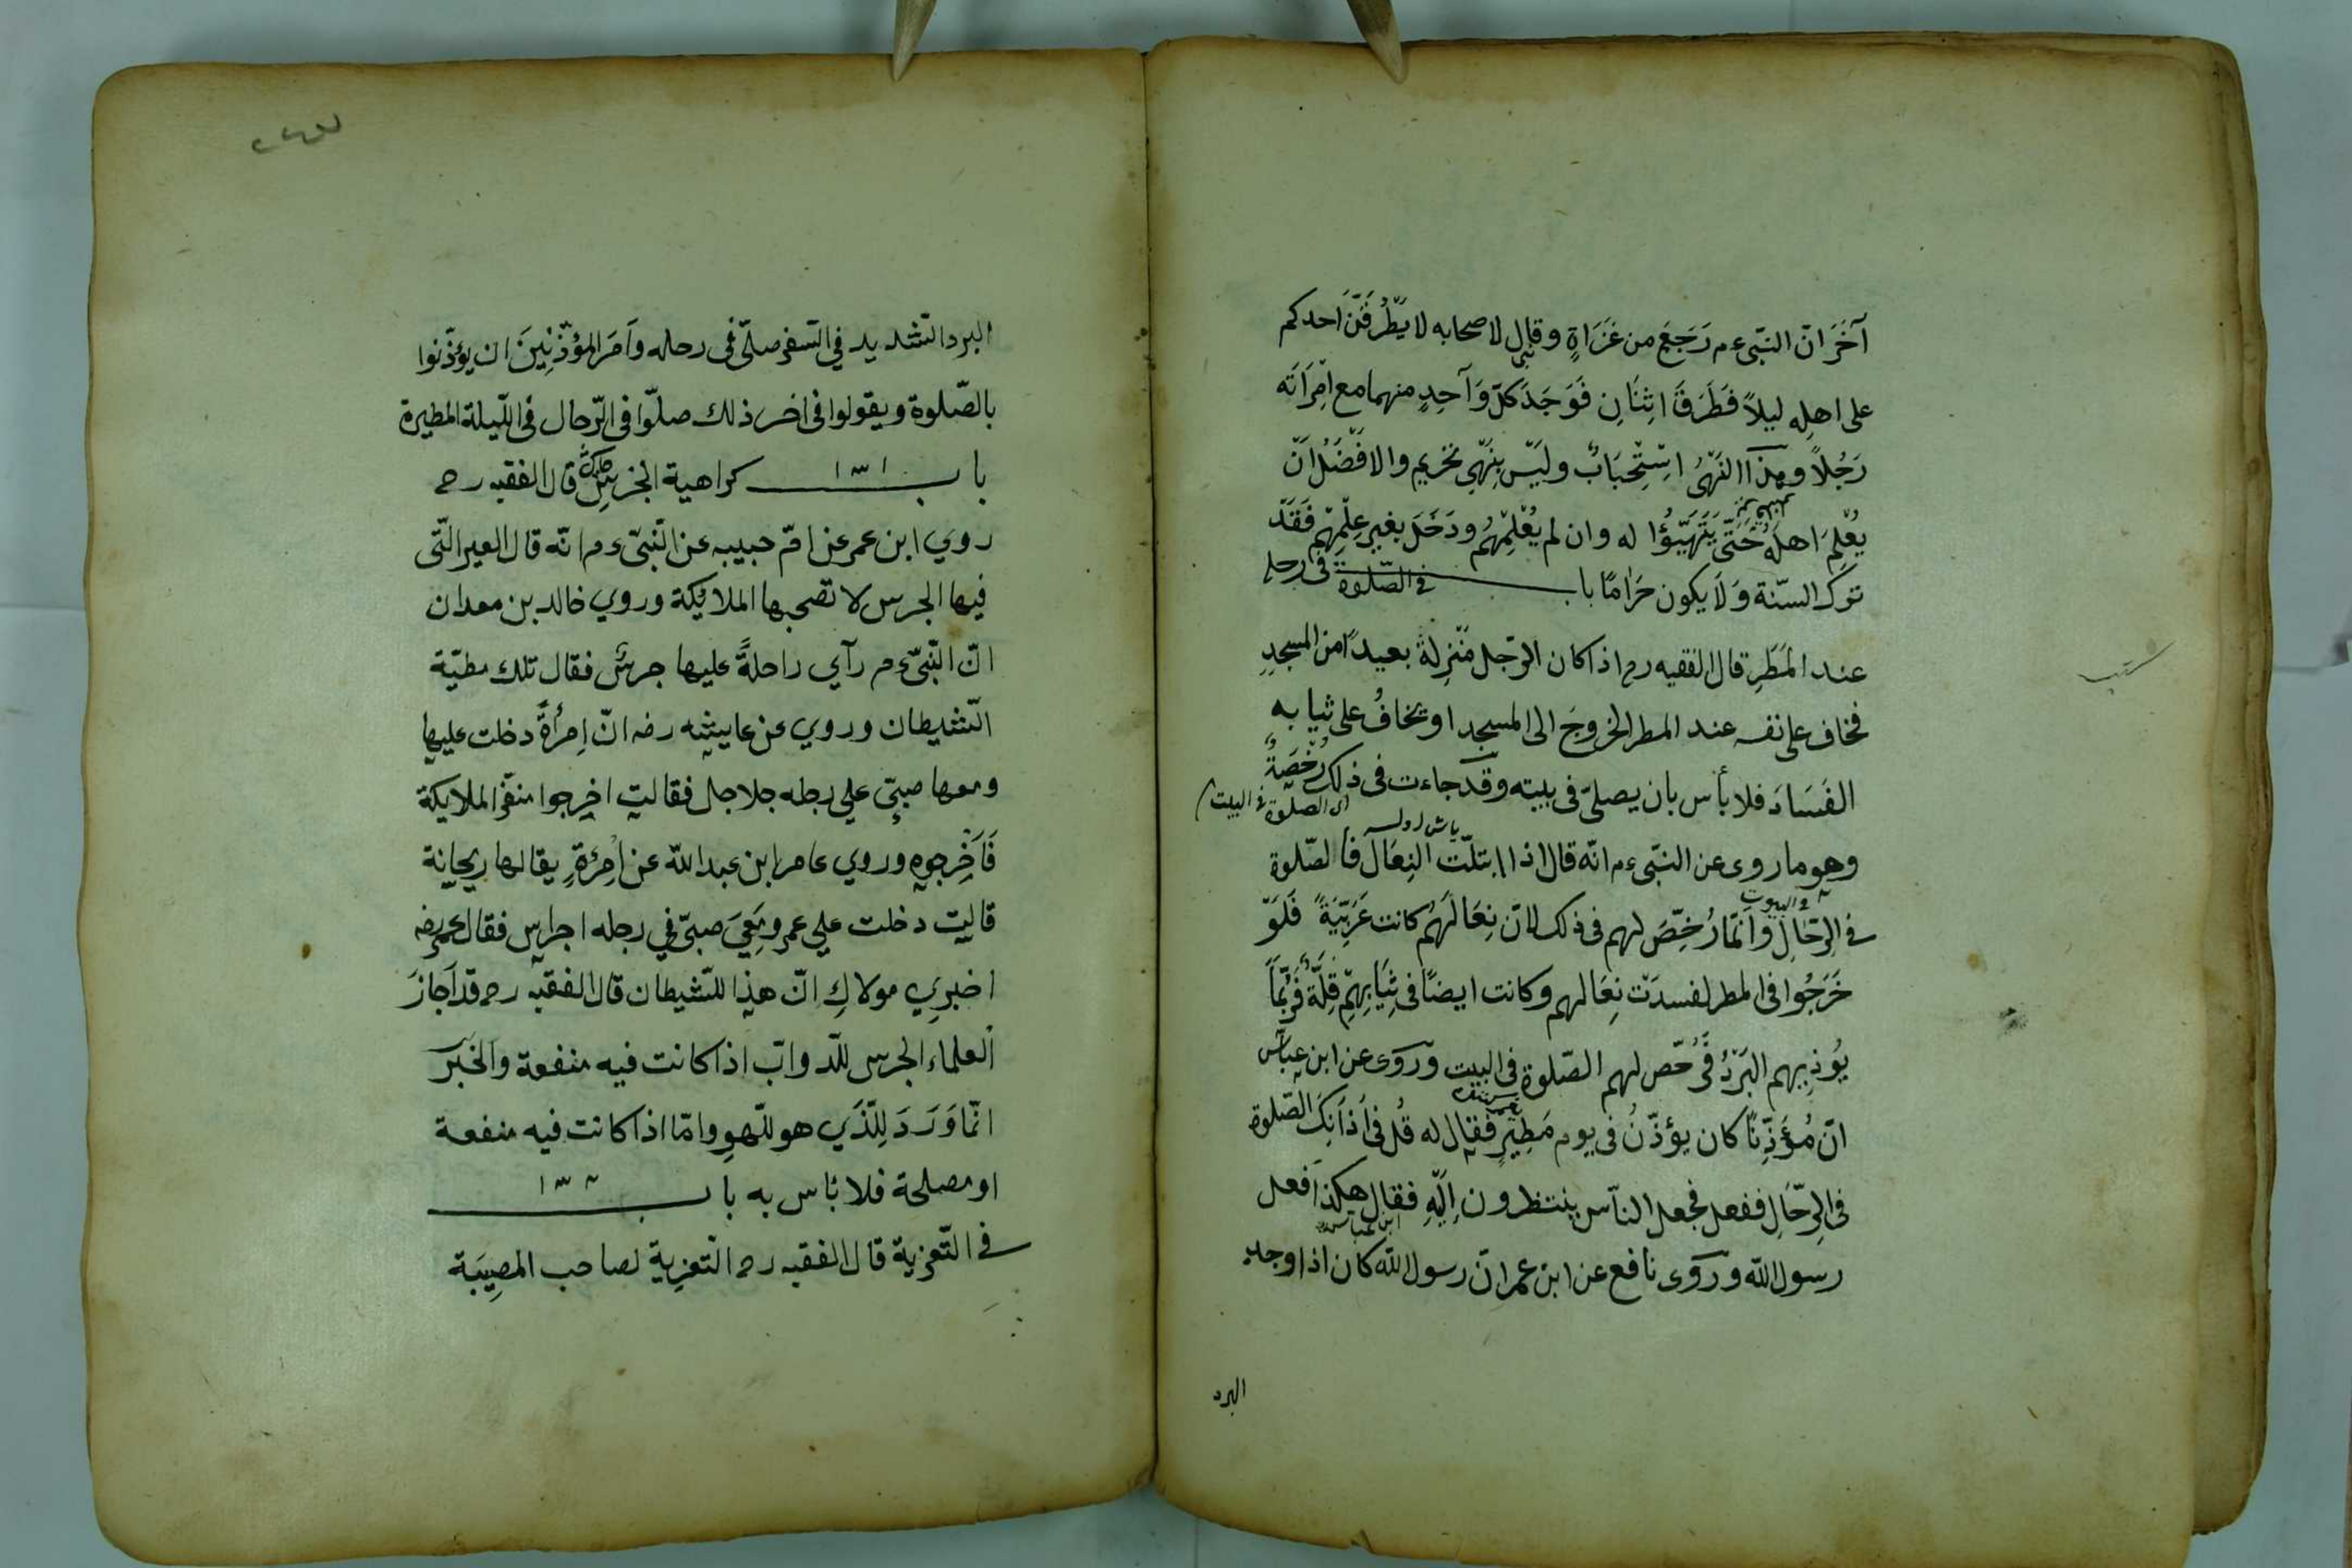 آخَرَ انّ النّبى ءم رَجَعَ من غَزَاةٍ وقال لاصحابه لا يَطْرُقَنَّ احدكم
على اهله ليلاً فَطَرَقَ اثنَانِ فَوَجَدَ كلّ وَآحِدٍ منهما مع امْرَاَته
رَجُلاً وهذا النَهْىُ اسْتِحْبَابٌ وليْس بِنَهْىِ تحريم والافْضَلُ اَنْ
يُعْلِمَ اهلَهُ حَتّى يَتَهَيّؤُا له وان لم يُعْلِمْهُم ودَخَلَ بغير عِلْمِهْم فَقَدْ
ترك السنّة وَلَا يكون حَرَامًا باب في الصّلوة فى رحله
عند المَطَرِ قال الفقيه رح اذا كان الرّجل مَنْزِلهُ بعيدًا من المسجدِ
فخاف على نفسه عند المطر الخروجَ الى المسجد او يخافُ على ثيابه
الفَسَادَ فلا بأس بان يصلىّ فى بيته وقد جاءت فى ذلك رُخْصَةٌ
اى الصلوة فى البيت
وهو ما روى عن النبّى ءم انّه قال اذا ابتلّت النِعَال فالصّلوة
والبيوت
في الرّحَالِ واَنّمَا رُخِّصَ لهم فى ذلك لانّ نِعَالَهُم كانت عَرَبِيّةً فَلَوْ
خَرَجُوا فى المطر لفسدَتْ نِعَالهم وكانت ايضًا فى ثِيَابِهِمْ قِلَّةٌ فَرُبَّمَا
يُوذِيهم البَرْدُ فَرُخّص لهم الصّلوة فى البيت ورَوَى عن ابن عبّاس
انّ مُؤَذِّنًا كان يؤذّنُ فى يوم مَطِيرٍ فقال له قُل فى اَذَانِكَ الصّلوة
فى الرّحَالِ ففعل فجعل النآس ينتظرون اِليْهِ فقال هكذا فعل
ابن عباس
رسول اللّه ورَوَى نافع عن ابن عمر انّ رسول اللّه كان اذا وجد
البرد
البرد الشّديد في السّفر صلّى فى رحله وأَمَرَ المؤذّنِينَ ان يؤذّنوا
بالصّلوة ويقولوا فى اخر ذلك صلّوا فى الرّحال فى اللّيلة المطيرة
باب ١٣١ كراهية الجرس قال الفقيه رح
روي ابن عمر عن امّ حبيبه عن النّبىّ ءم انّه قال العير الّتى
فيها الجرس لا تصحبها الملائكة وروي خالد بن معدان
انّ النّبىّ ءم رآي راحلةً عليها جرسٌ فقال تلك مطيّة
الشيطان وروي عن عايشه رضه انّ اِمرأةً دخلت عليها
ومعها صبيّ علي رجله جلاجل فقالت اخرجوا منفّر الملايكة
فَاَخرجوه وروي عامر ابن عبداللّه عن اِمرئةٍ يقال لها ريحانة
قالت دخلت علي عمر ومَعِيَ صبيّ في رجله اجراس فقال عمر رضه
اخبرِي مولاكِ انّ هذا للشيطان قال الفقيه رح قد اَجازَ
العلماء الجرس للّدوابّ اذا كانت فيه منفعة والخَبَر
انّما وَرَدَ لِلّذَي هو للّهوِ وامّا اذا كانت فيه منفعة
او مصلحة فلا بٔاس به باب ١٣٢
في التّعزية قال الفقيه رح التّعزِية لصاحب المصِيبَة